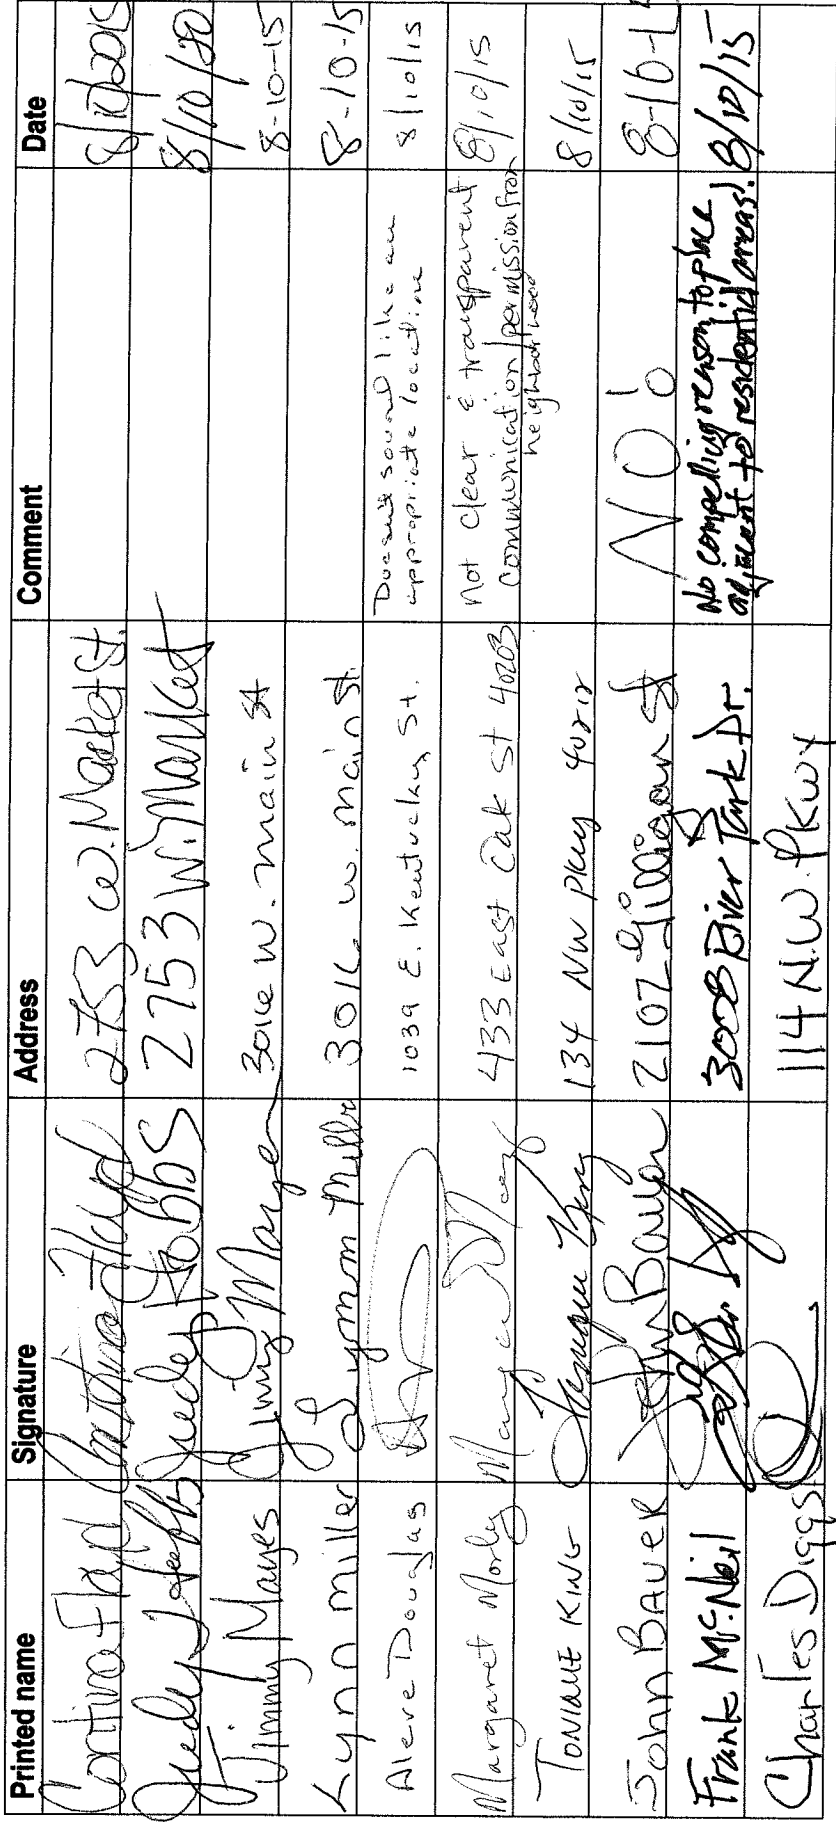 Printed name Signature Address Comment Date
Contina Floyd Contina Floyd 2753 W. Market St. 8/10/2015
Judy Judy Hobbs 2753 W. Market 8/10/20
Jimmy Mayes Jimmy Mayes 3016 W. Main St 8-10-15
Lynn Miller Lynn Miller 3016 W. Main St. 8-10-15
Aleve Douglas 1039 E. Kentucky St. Doesn't sound like an
appropriate location 8/10/15
Margaret Morley 433 East Oak St 40203 Not clear & transparent
communication/permission from
neighborhood 8/10/15
TONIQUE KING Tonique King 134 NW Pkwy 40212 8/10/15
John BAUER John Bauer 2107 Gilligan St NO! 8-10-1
Frank McNeil 3008 River Park Dr. No compelling reason to place
adjacent to residential areas. 8/10/15
Charles Diggs 114 N.W. Pkwy